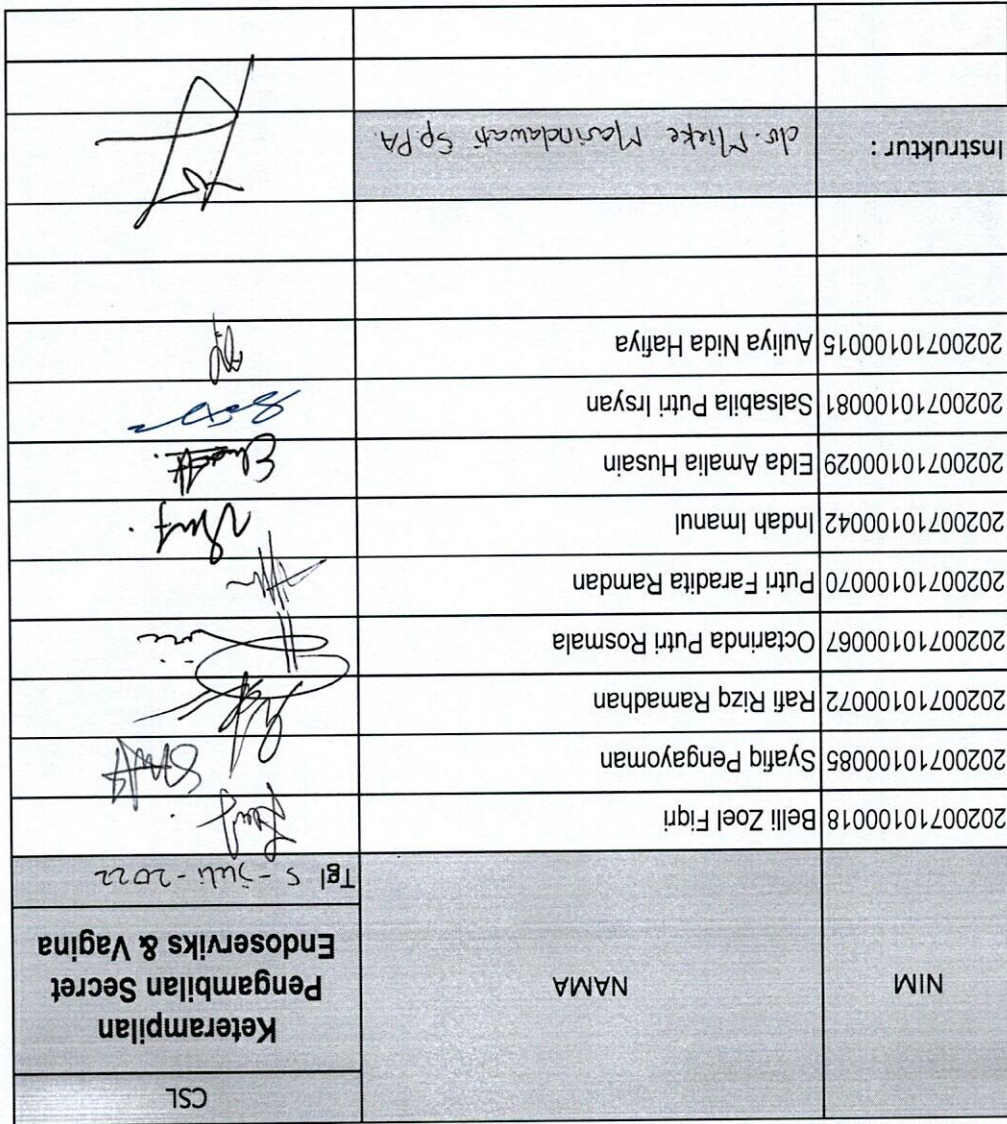 CSL
NIM NAMA Keterampilan
Pengambilan Secret
Endoserviks & Vagina
Tgl 5 - juli - 2022
202007101 00018 Belli Zoel Fiqri
202007101 00085 Syafiq Pengayoman
202007101 00072 Rafi Rizq Ramadhan
202007101 00067 Octarinda Putri Rosmala
202007101 00070 Putri Faradita Ramdan
202007101 00042 Indah Imanul
202007101 00029 Elda Amalia Husain
202007101 00081 Salsabila Putri Irsyan
202007101 00015 Auliya Nida Hafiya
Instruktur : dr. Mieke Marindawati Sp.PA